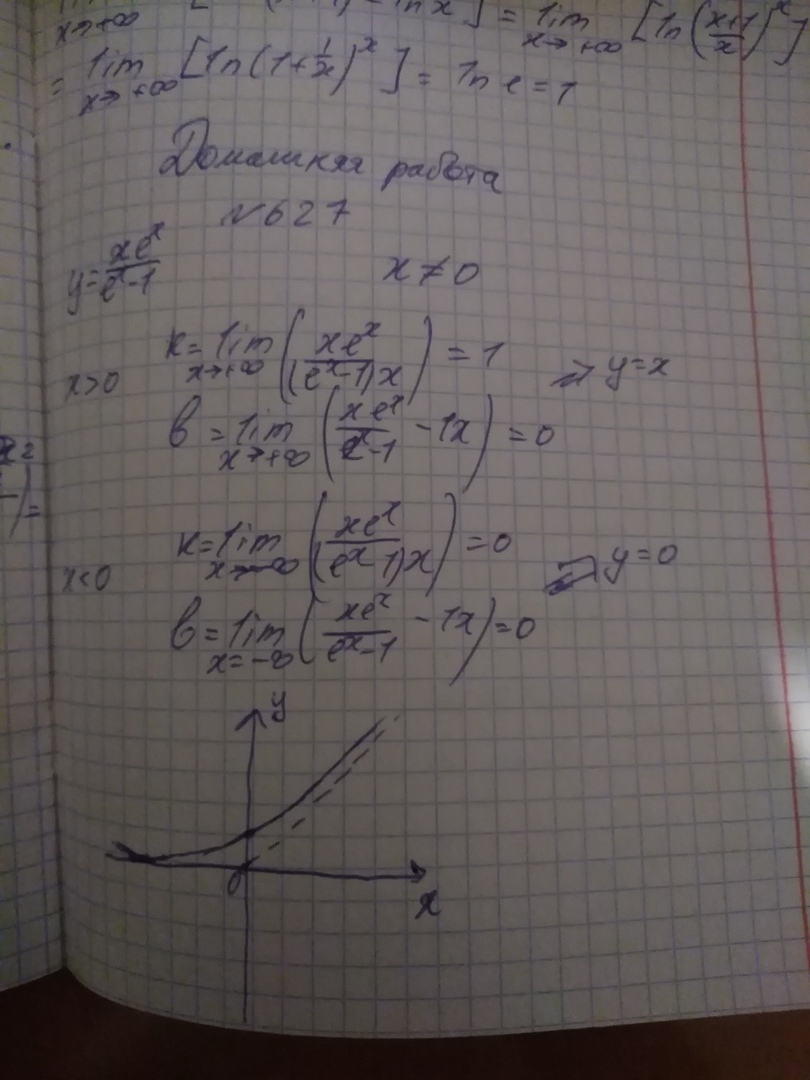 x→+∞ ln x] = lim x→+∞ [ln(x+1/x)^x]
= lim x→+∞ [ln(1+1/x)^x] = ln e = 1
Домашняя работа
№627
y = xe^x/e^x-1 x ≠ 0
x>0 к = lim x→+∞ (xe^x/(e^x-1)x) = 1 ⇒ y=x
в = lim x→+∞ (xe^x/e^x-1 - 1x) = 0
x<0 к = lim x→-∞ (xe^x/(e^x 1)x) = 0 ⇒ y=0
в = lim x=-∞ (xe^x/e^x-1 - 1x) = 0
y
0
x